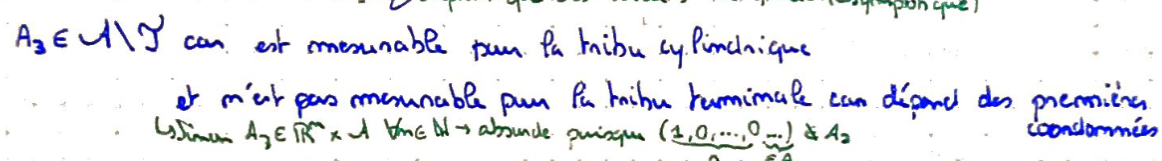 (asymptotique)
A₃ ∈ 𝒜\𝒯 car est mesurable pour la tribu cylindrique
et n'est pas mesurable pour la tribu terminale car dépend des premières coordonnées
↳ Sinon A₃ ∈ ℝⁿ × 𝒜 ∀n ∈ ℕ → absurde puisque (1,0,...,0 ...) ∉ A₃